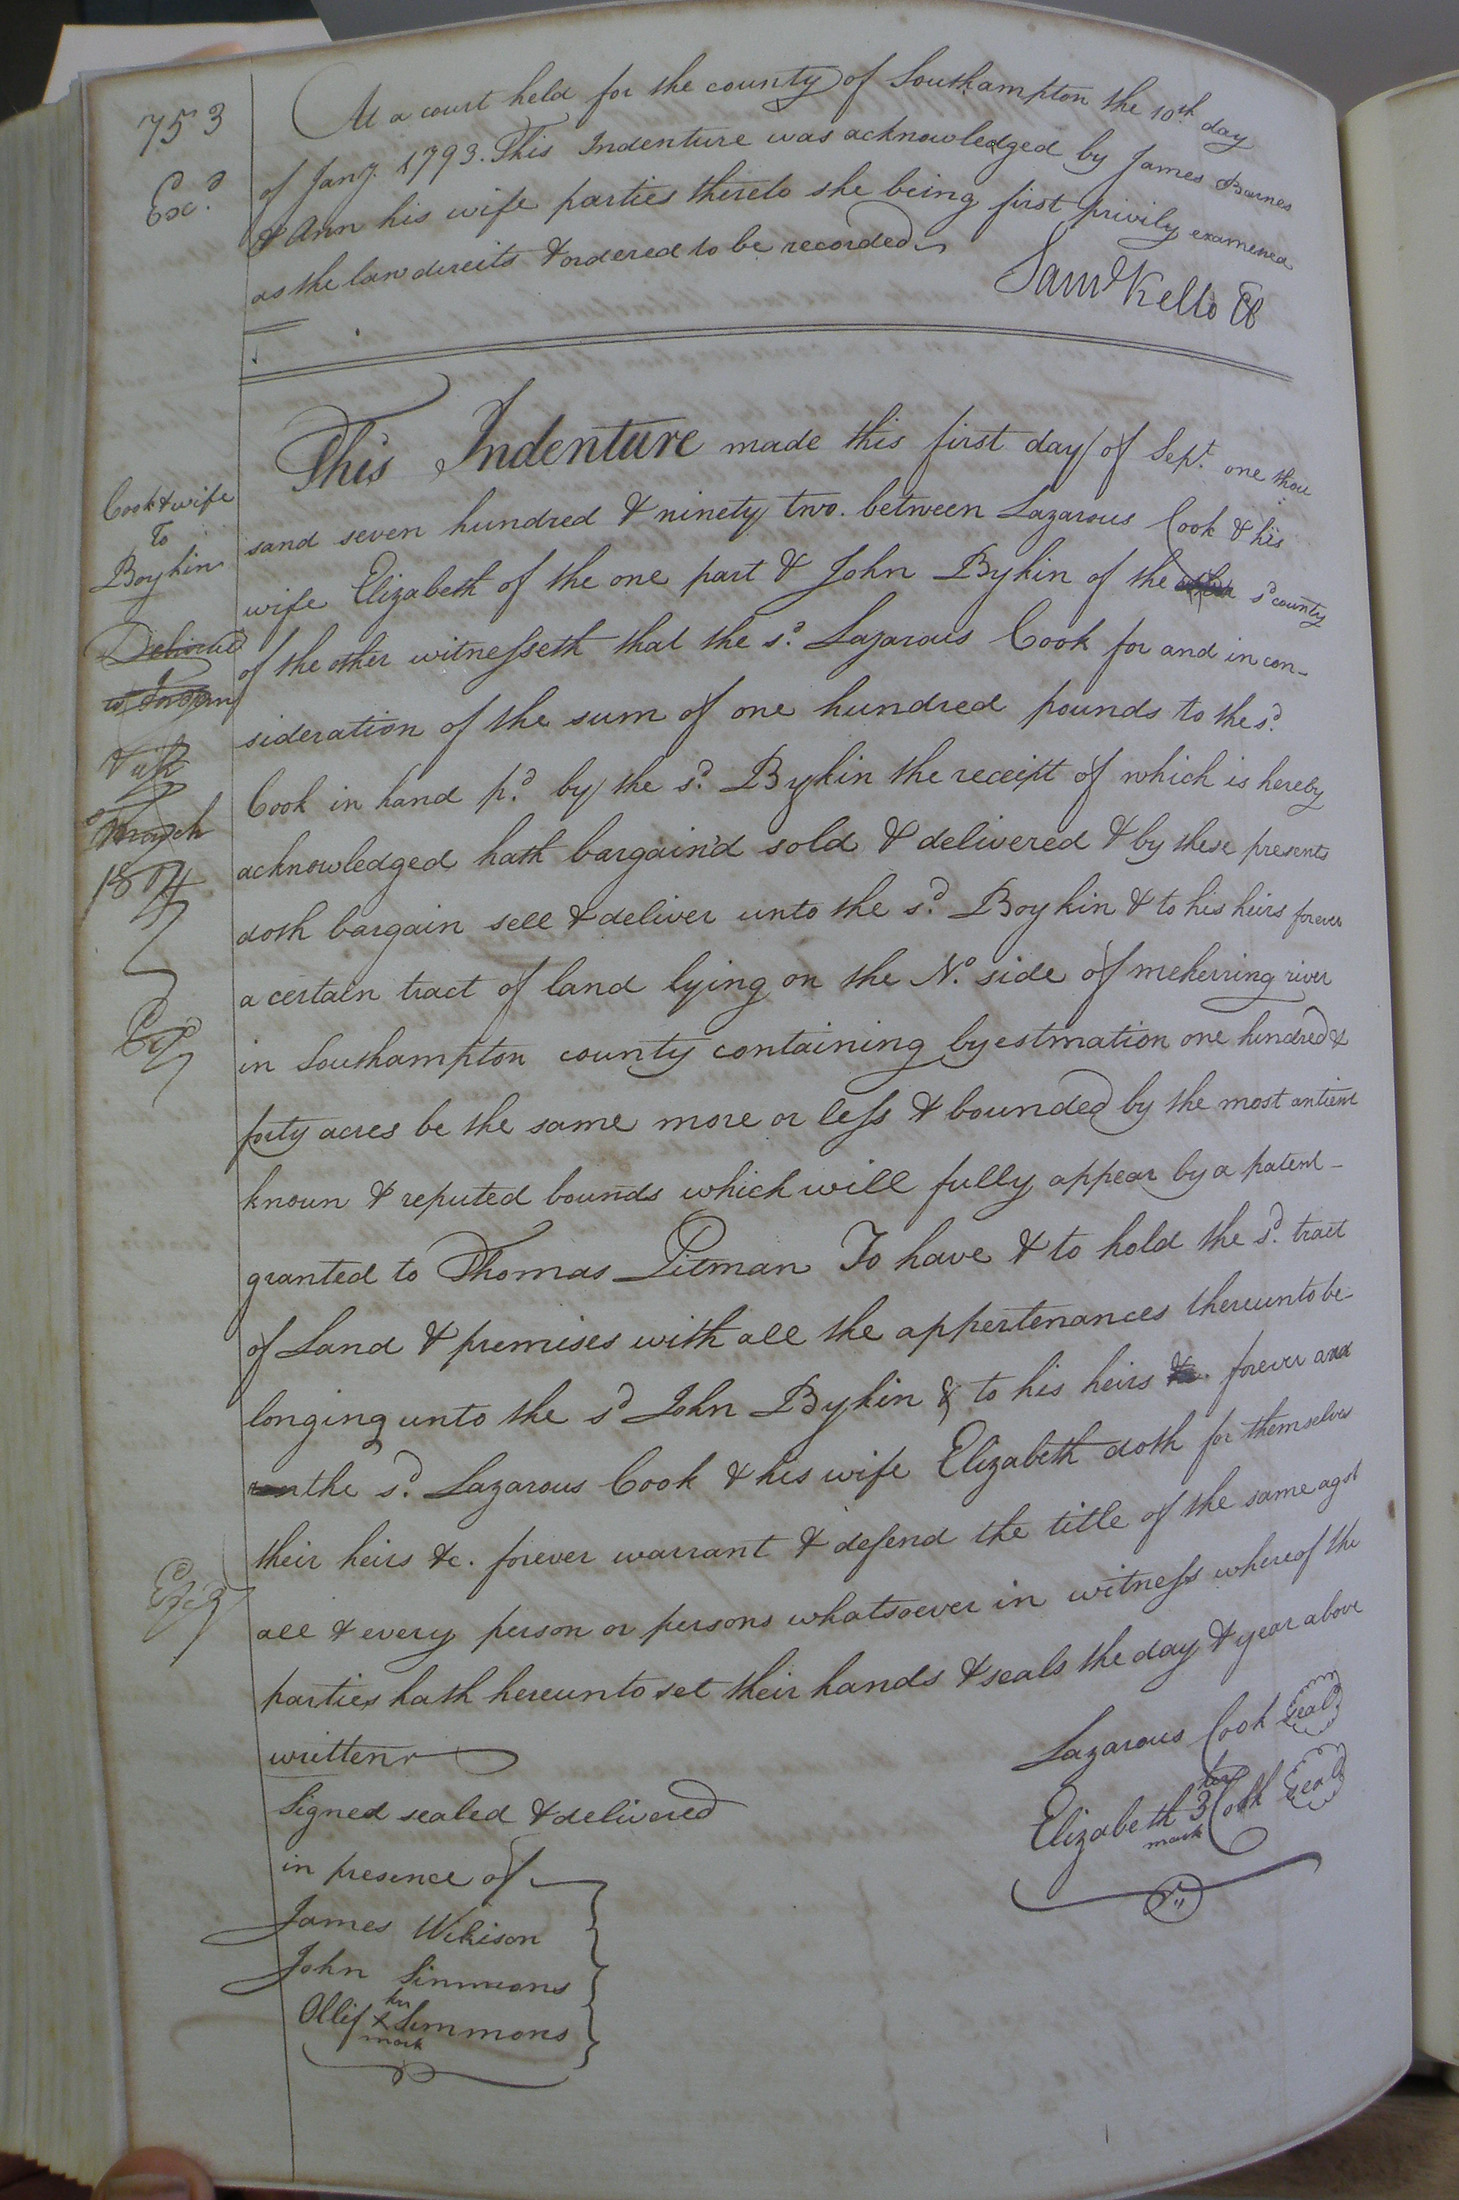 753
Ex.d
At a court held for the county of Southampton the 10th. day
of Jany. 1793. This Indenture was acknowledged by James Barnes
& Ann his wife parties thereto she being first privily examened
as the law direits & ordered to be recorded
Saml Kello
Cook & wife
To
Boykin
This Indenture made this first day of Sept. one thou
sand seven hundred & ninety two. between Lazarous Cook & his
wife Elizabeth of the one part & John Bykin of the sd county
of the other witnesseth that the sd. Lazarous Cook for and in con-
sideration of the sum of one hundred pounds to the sd.
Cook in hand pd. by the sd. Bykin the receipt of which is hereby
acknowledged hath bargain'd sold & delivered & by these presents
doth bargain sell & deliver unto the sd. Boykin & to his heirs forever
a certain tract of land lying on the No. side of meherring river
in Southampton county containing by estmation one hundred &
forty acres be the same more or less & bounded by the most antient
known & reputed bounds which will fully appear by a patent-
granted to Thomas Pitman To have & to hold the sd. tract
of Land & premises with all the appertenances thereunto be-
longing unto the sd John Bykin & to his heirs forever and
the sd. Lazarous Cook & his wife Elizabeth doth for themselves
their heirs &c. forever warrant & defend the title of the same agst
all & every person or persons whatsoever in witness whereof the
parties hath hereunto set their hands & seals the day & year above
written
Delivered
March
1804
Lazarous Cook Seal
her
Elizabeth 3 Cook Seal
mark
Signed sealed & delivered
in presence of
James Wikison
John Simmons
her
Ollif x Simmons
mark